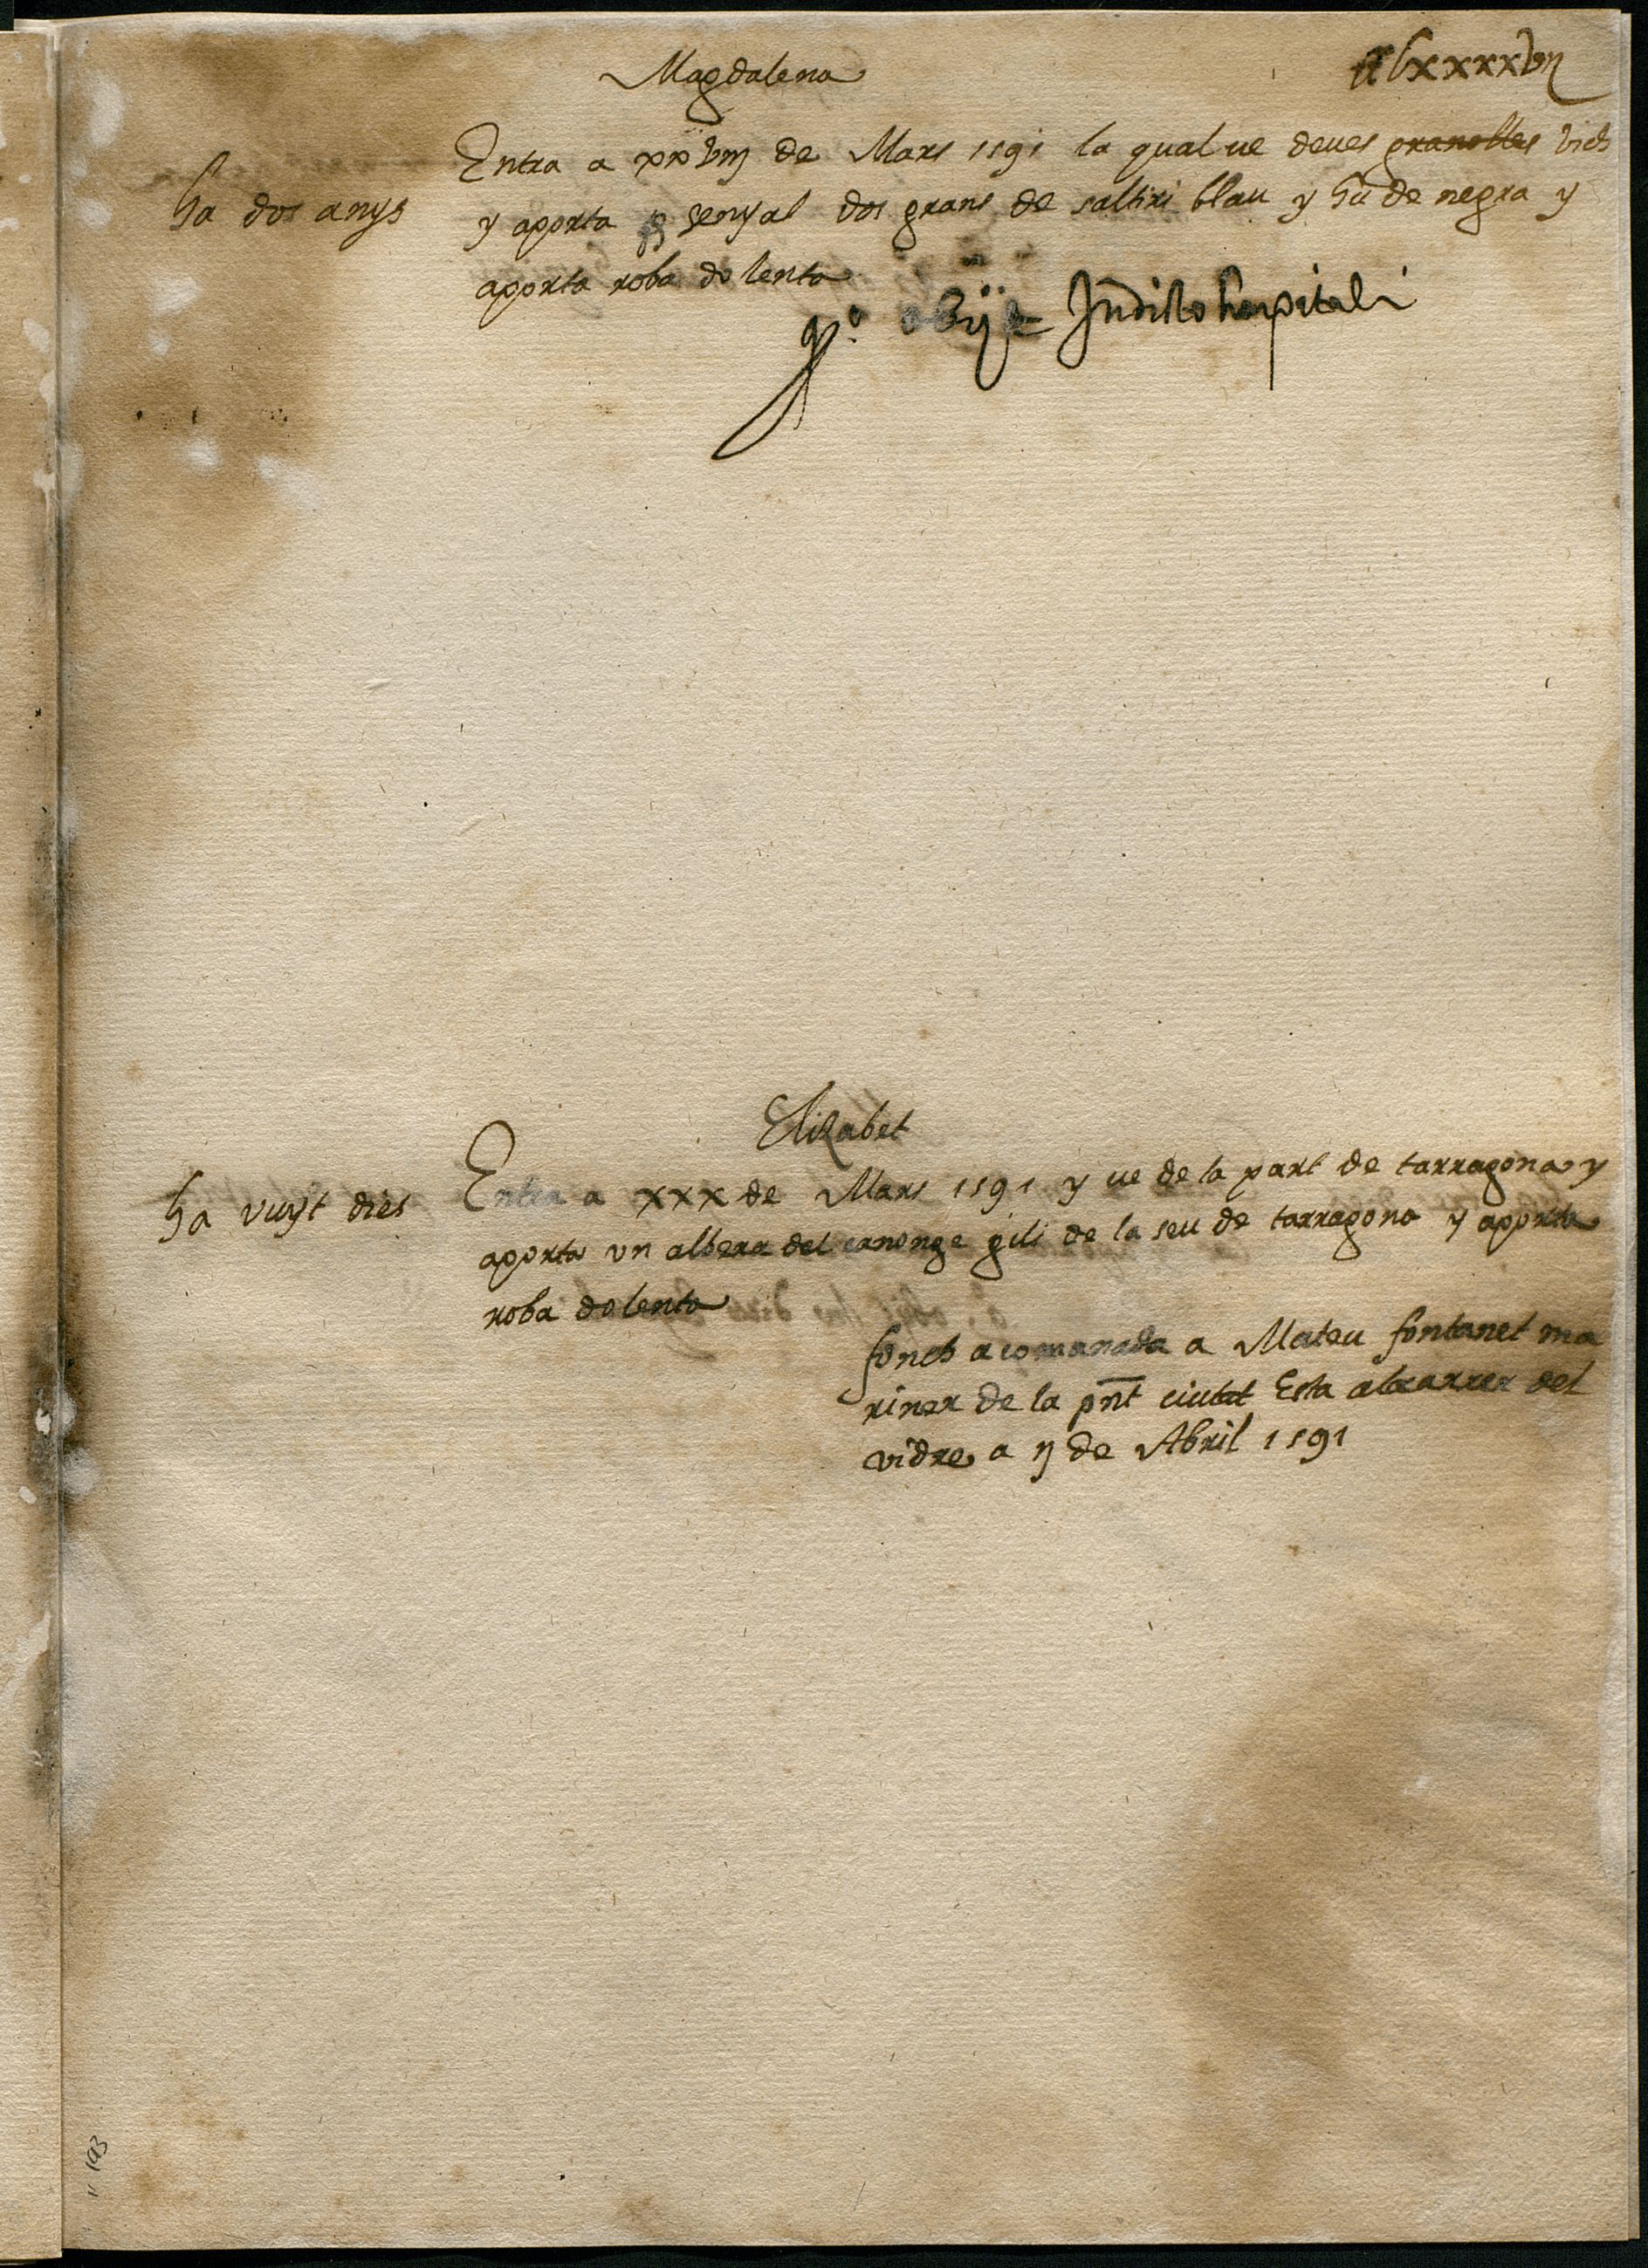 Magdalena
Entra a xxviij de Mars 1591 la qual ve deves granolles vich
ha dos anys
y aporta p senyal dos grans de saltiri blau y hu de negra y
aporta roba dolenta
obijt In dicto hospitali
Elizabet
Entra a xxx de Mars 1591 y ve de la part de tarragona y
ha vuyt dies
aporta vn albera del canonge gili de la seu de tarragona y aporta
roba dolenta
fonch acomanada a Mateu fontanet ma
riner de la pnt ciutat Esta al carrer del
vidre a ij de Abril 1591
193